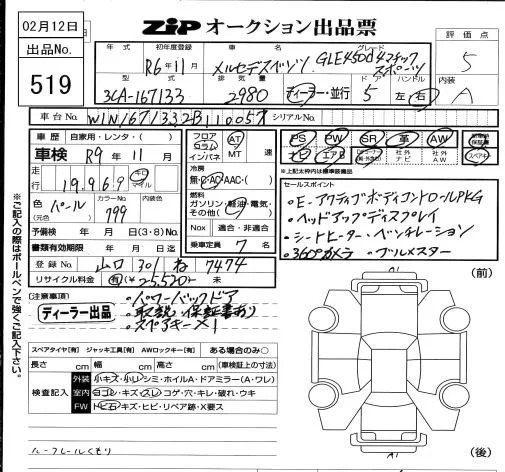 02月12日
ZiP オークション出品票
出品No.
519
年式 初年度登録 車名 グレード 評価点
R6年11月 メルセデスベンツ GLE450d4マチック スポーツ 5
型式 排気量 ドア ハンドル 内装
3CA-167133 2980 ディーラー・並行 5 左・右 A
車台No. W1N1671332B110057 シリアルNo.
車歴 自家用・レンタ・( )
車検 R9年11月
走行 19,969 キロ マイル
色 パール (元色) カラーNo. 799 内装色
予備検 年 月 日(3・8)No.
書類有効期限 年 月 日迄
登録No. 山口 301 ね 7474
リサイクル料金 有(¥25,520) 未
フロア コラム インパネ AT MT 速
冷房 無・C・AC・AAC・( )
燃料 ガソリン・軽油・電気・その他( )
Nox 適合・非適合
乗車定員 7 名
PS PW SR 革 AW
ナビ エアB 社外ナビ 社外AW スペアキー
※上記太枠内は標準装備品
セールスポイント
・E-アクティブボディコントロールPKG
・ヘッドアップディスプレイ
・シートヒーター・ベンチレーション
・360°カメラ ・ブルメスター
[注意事項]
ディーラー出品
・パワーバックドア
・取説・保証書あり
・スペアキー×1
※ご記入の際はボールペンで強くご記入下さい。
スペアタイヤ[有] ジャッキ工具[有] AWロックキー[有] ある場合のみ○
長さ cm 幅 cm 高さ cm (車検証上の寸法)
検査記入
外装 小キズ・小凹・シミ・ホイルA・ドアミラー(A・ワレ)
室内 ヨゴレ・キズ・スレ・コゲ・穴・キレ・破れ・ウキ
FW トビ石・キズ・ヒビ・リペア跡・X要ス
ルーフレールくもり
(前)
A1
A1
(後)